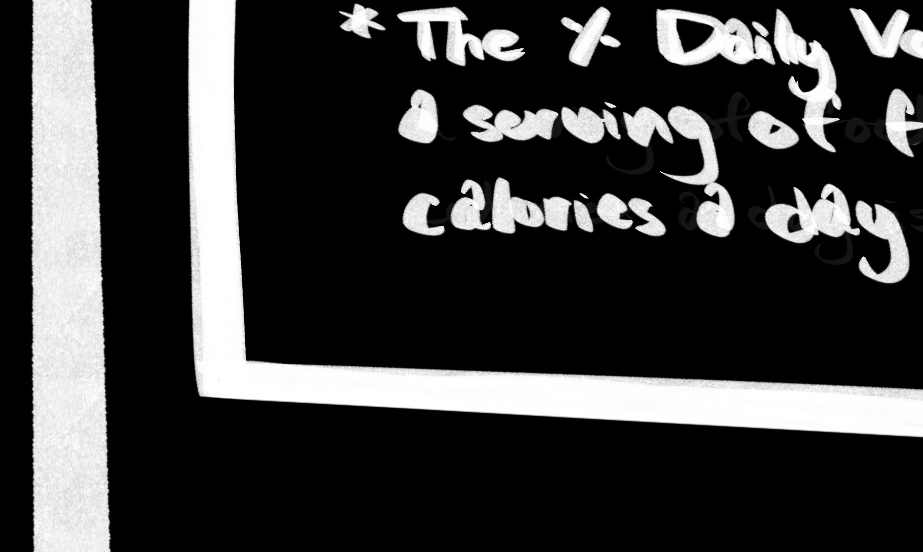 * The % Daily Va
a serving of f
calories a day